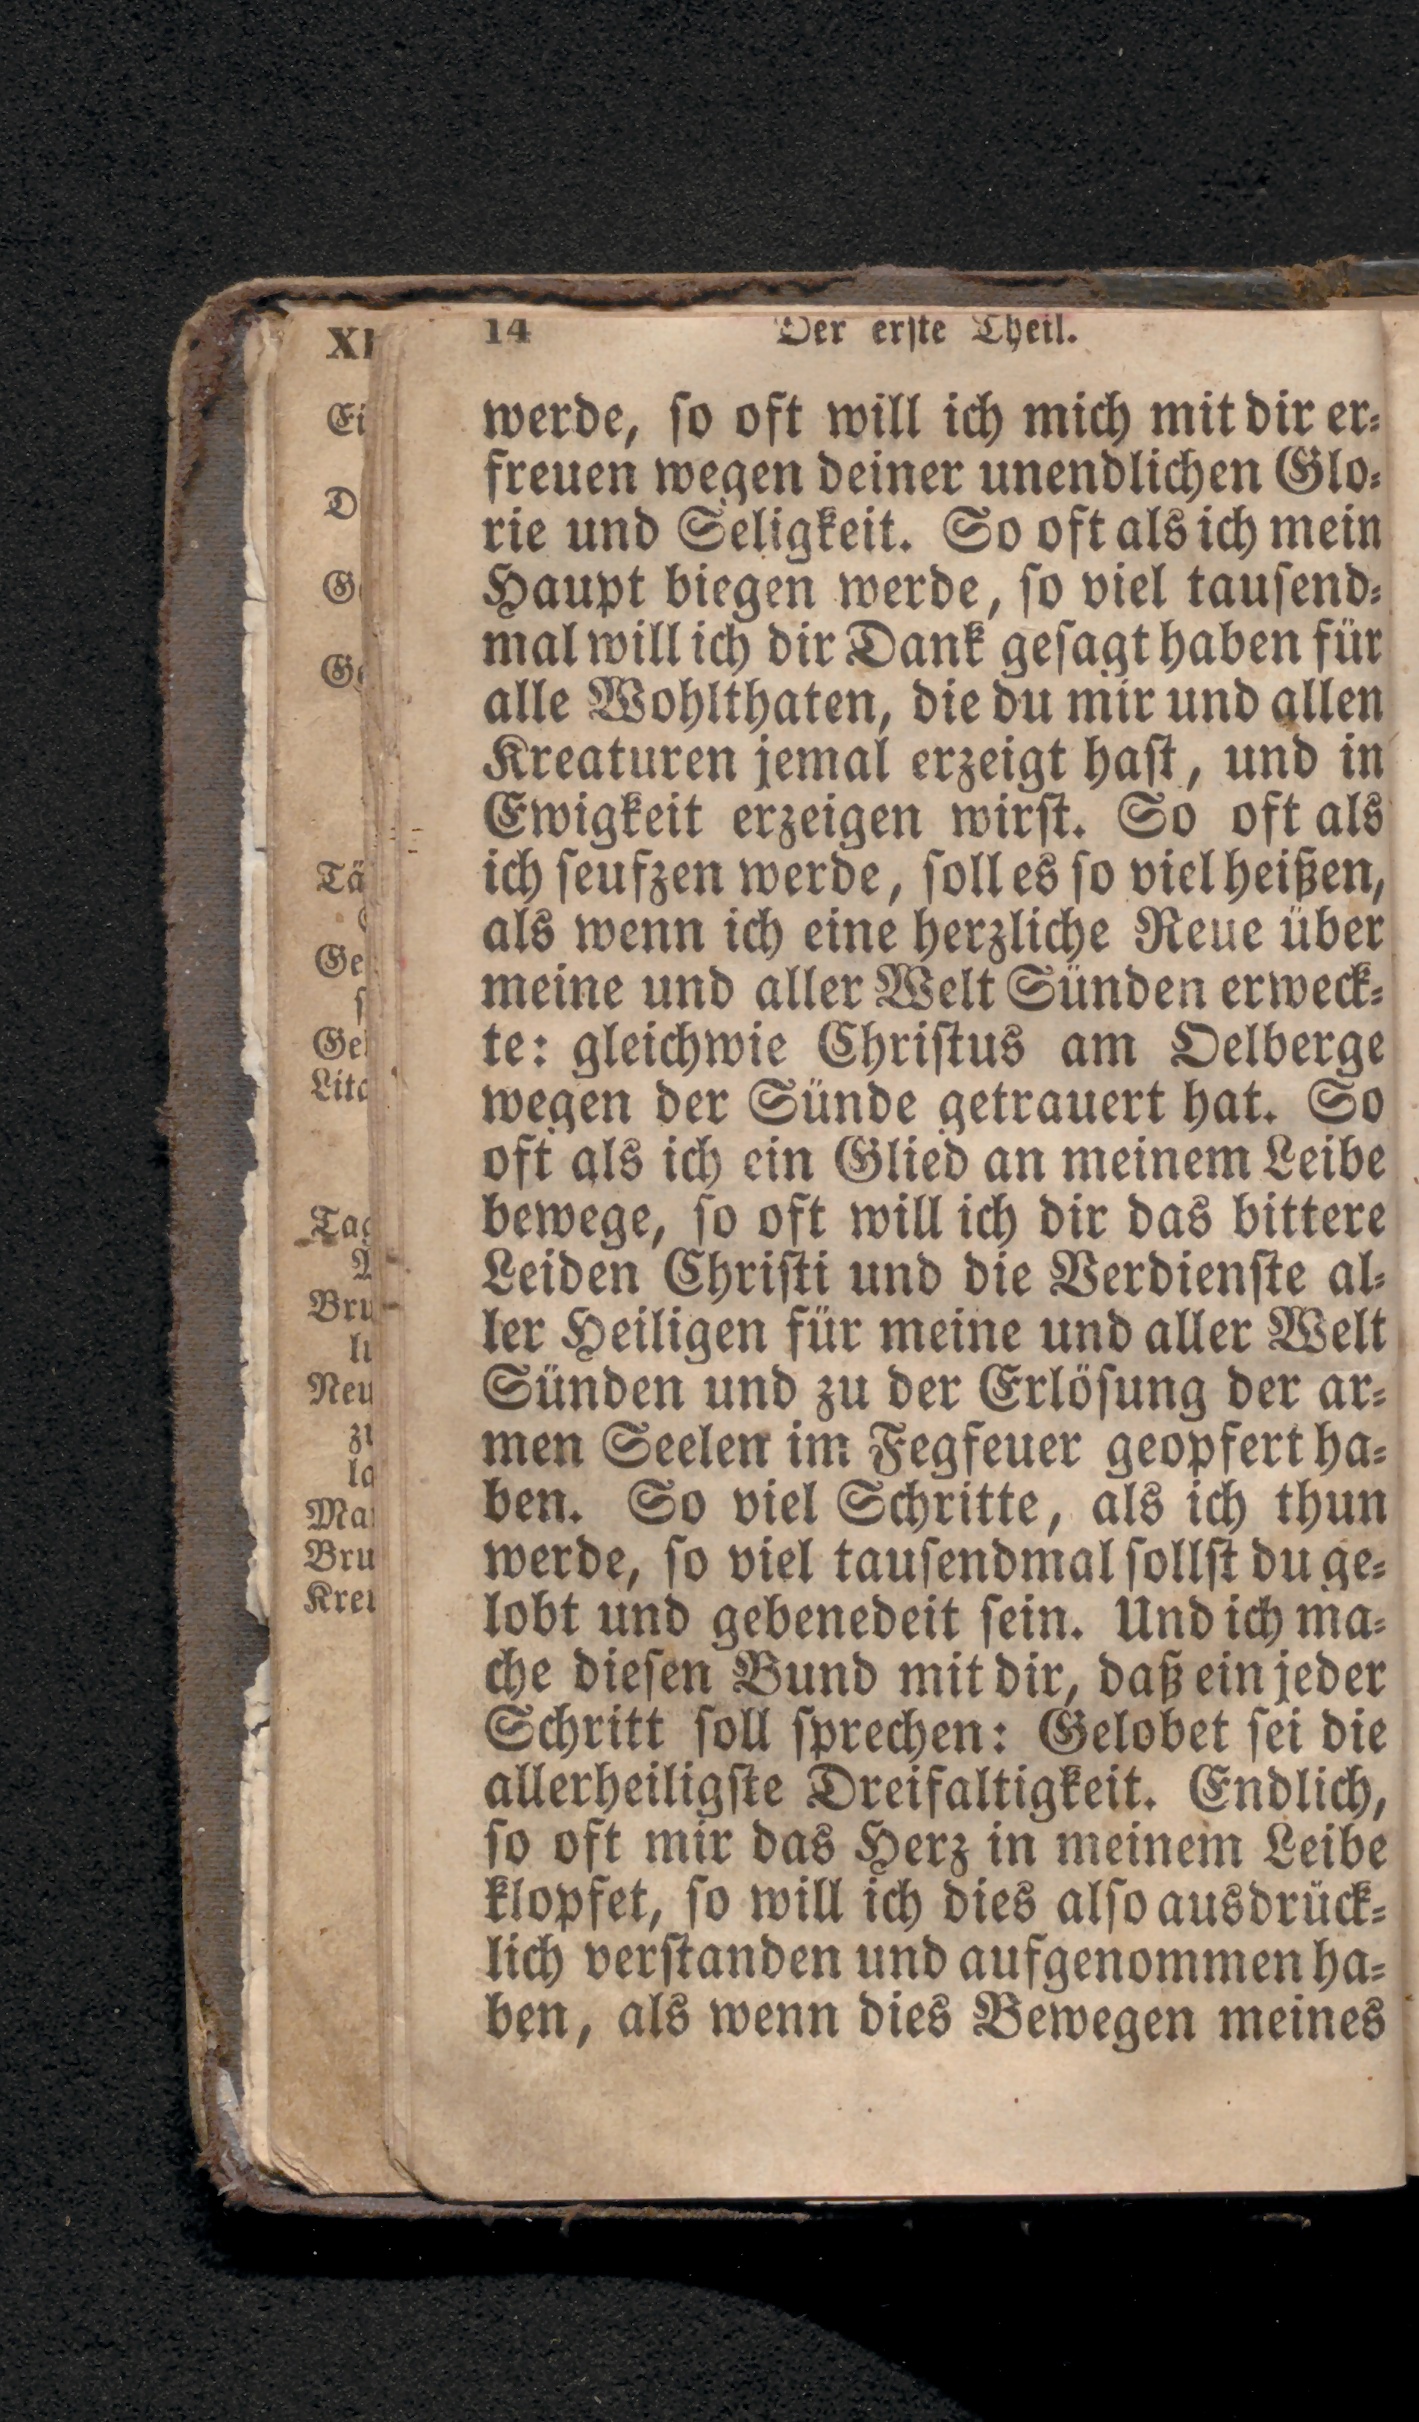 14 Der erste Theil.
werde, so oft will ich mich mit dir er-
freuen wegen deiner unendlichen Glo-
rie und Seligkeit. So oft als ich mein
Haupt biegen werde, so viel tausend-
mal will ich dir Dank gesagt haben für
alle Wohlthaten, die du mir und allen
Kreaturen jemal erzeigt hast, und in
Ewigkeit erzeigen wirst. So oft als
ich seufzen werde, soll es so viel heißen,
als wenn ich eine herzliche Reue über
meine und aller Welt Sünden erweck-
te: gleichwie Christus am Oelberge
wegen der Sünde getrauert hat. So
oft als ich ein Glied an meinem Leibe
bewege, so oft will ich dir das bittere
Leiden Christi und die Verdienste al-
ler Heiligen für meine und aller Welt
Sünden und zu der Erlösung der ar-
men Seelen im Fegfeuer geopfert ha-
ben. So viel Schritte, als ich thun
werde, so viel tausendmal sollst du ge-
lobt und gebenedeit sein. Und ich ma-
che diesen Bund mit dir, daß ein jeder
Schritt soll sprechen: Gelobet sei die
allerheiligste Dreifaltigkeit. Endlich,
so oft mir das Herz in meinem Leibe
klopfet, so will ich dies also ausdrück-
lich verstanden und aufgenommen ha-
ben, als wenn dies Bewegen meines